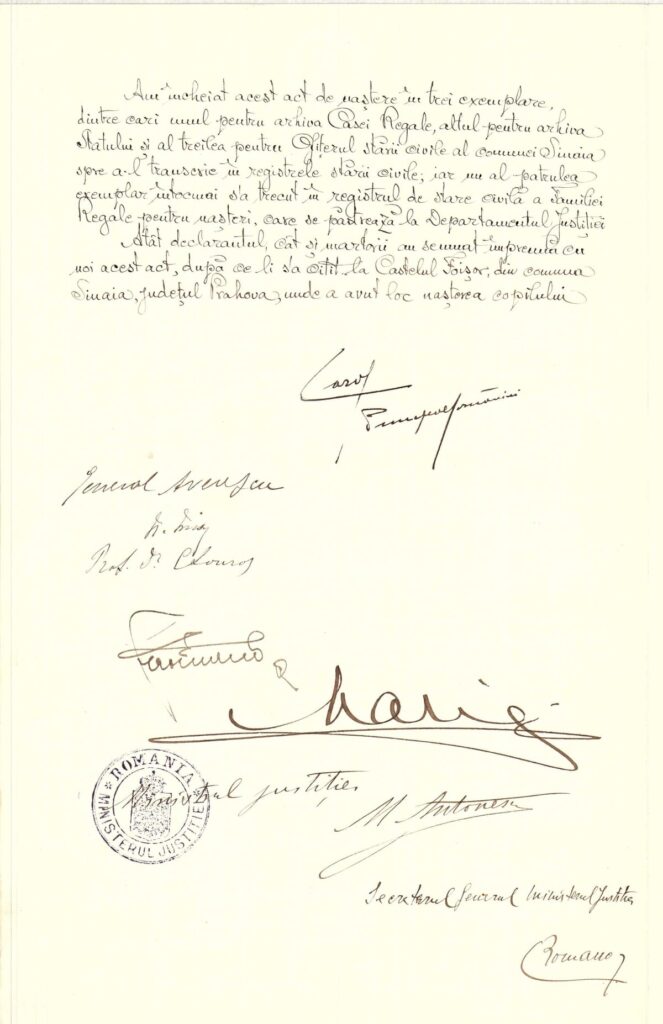 Am încheiat acest act de naștere în trei exemplare,
dintre cari unul pentru arhiva Casei Regale, altul pentru arhiva
Statului și al treilea pentru Ofițerul stării civile al comunei Sinaia
spre a-l transcrie în registrele stării civile; iar un al patrulea
exemplar întocmai s'a trecut în registrul de stare civilă a Familiei
Regale pentru nașteri, care se păstrează la Departamentul Justiției
Atât declarantul, cât și martorii au semnat împreună cu
noi acest act, după ce li s'a citit la Castelul Foișor, din comuna
Sinaia, județul Prahova, unde a avut loc nașterea copilului
Carol
General Averescu
Prof. Dr. C Louros
Ferdinand R
Maria
ROMANIA
MINISTERUL JUSTIȚIEI
Ministrul justiției
M Antonescu
Secretarul General Ministerul Justiției